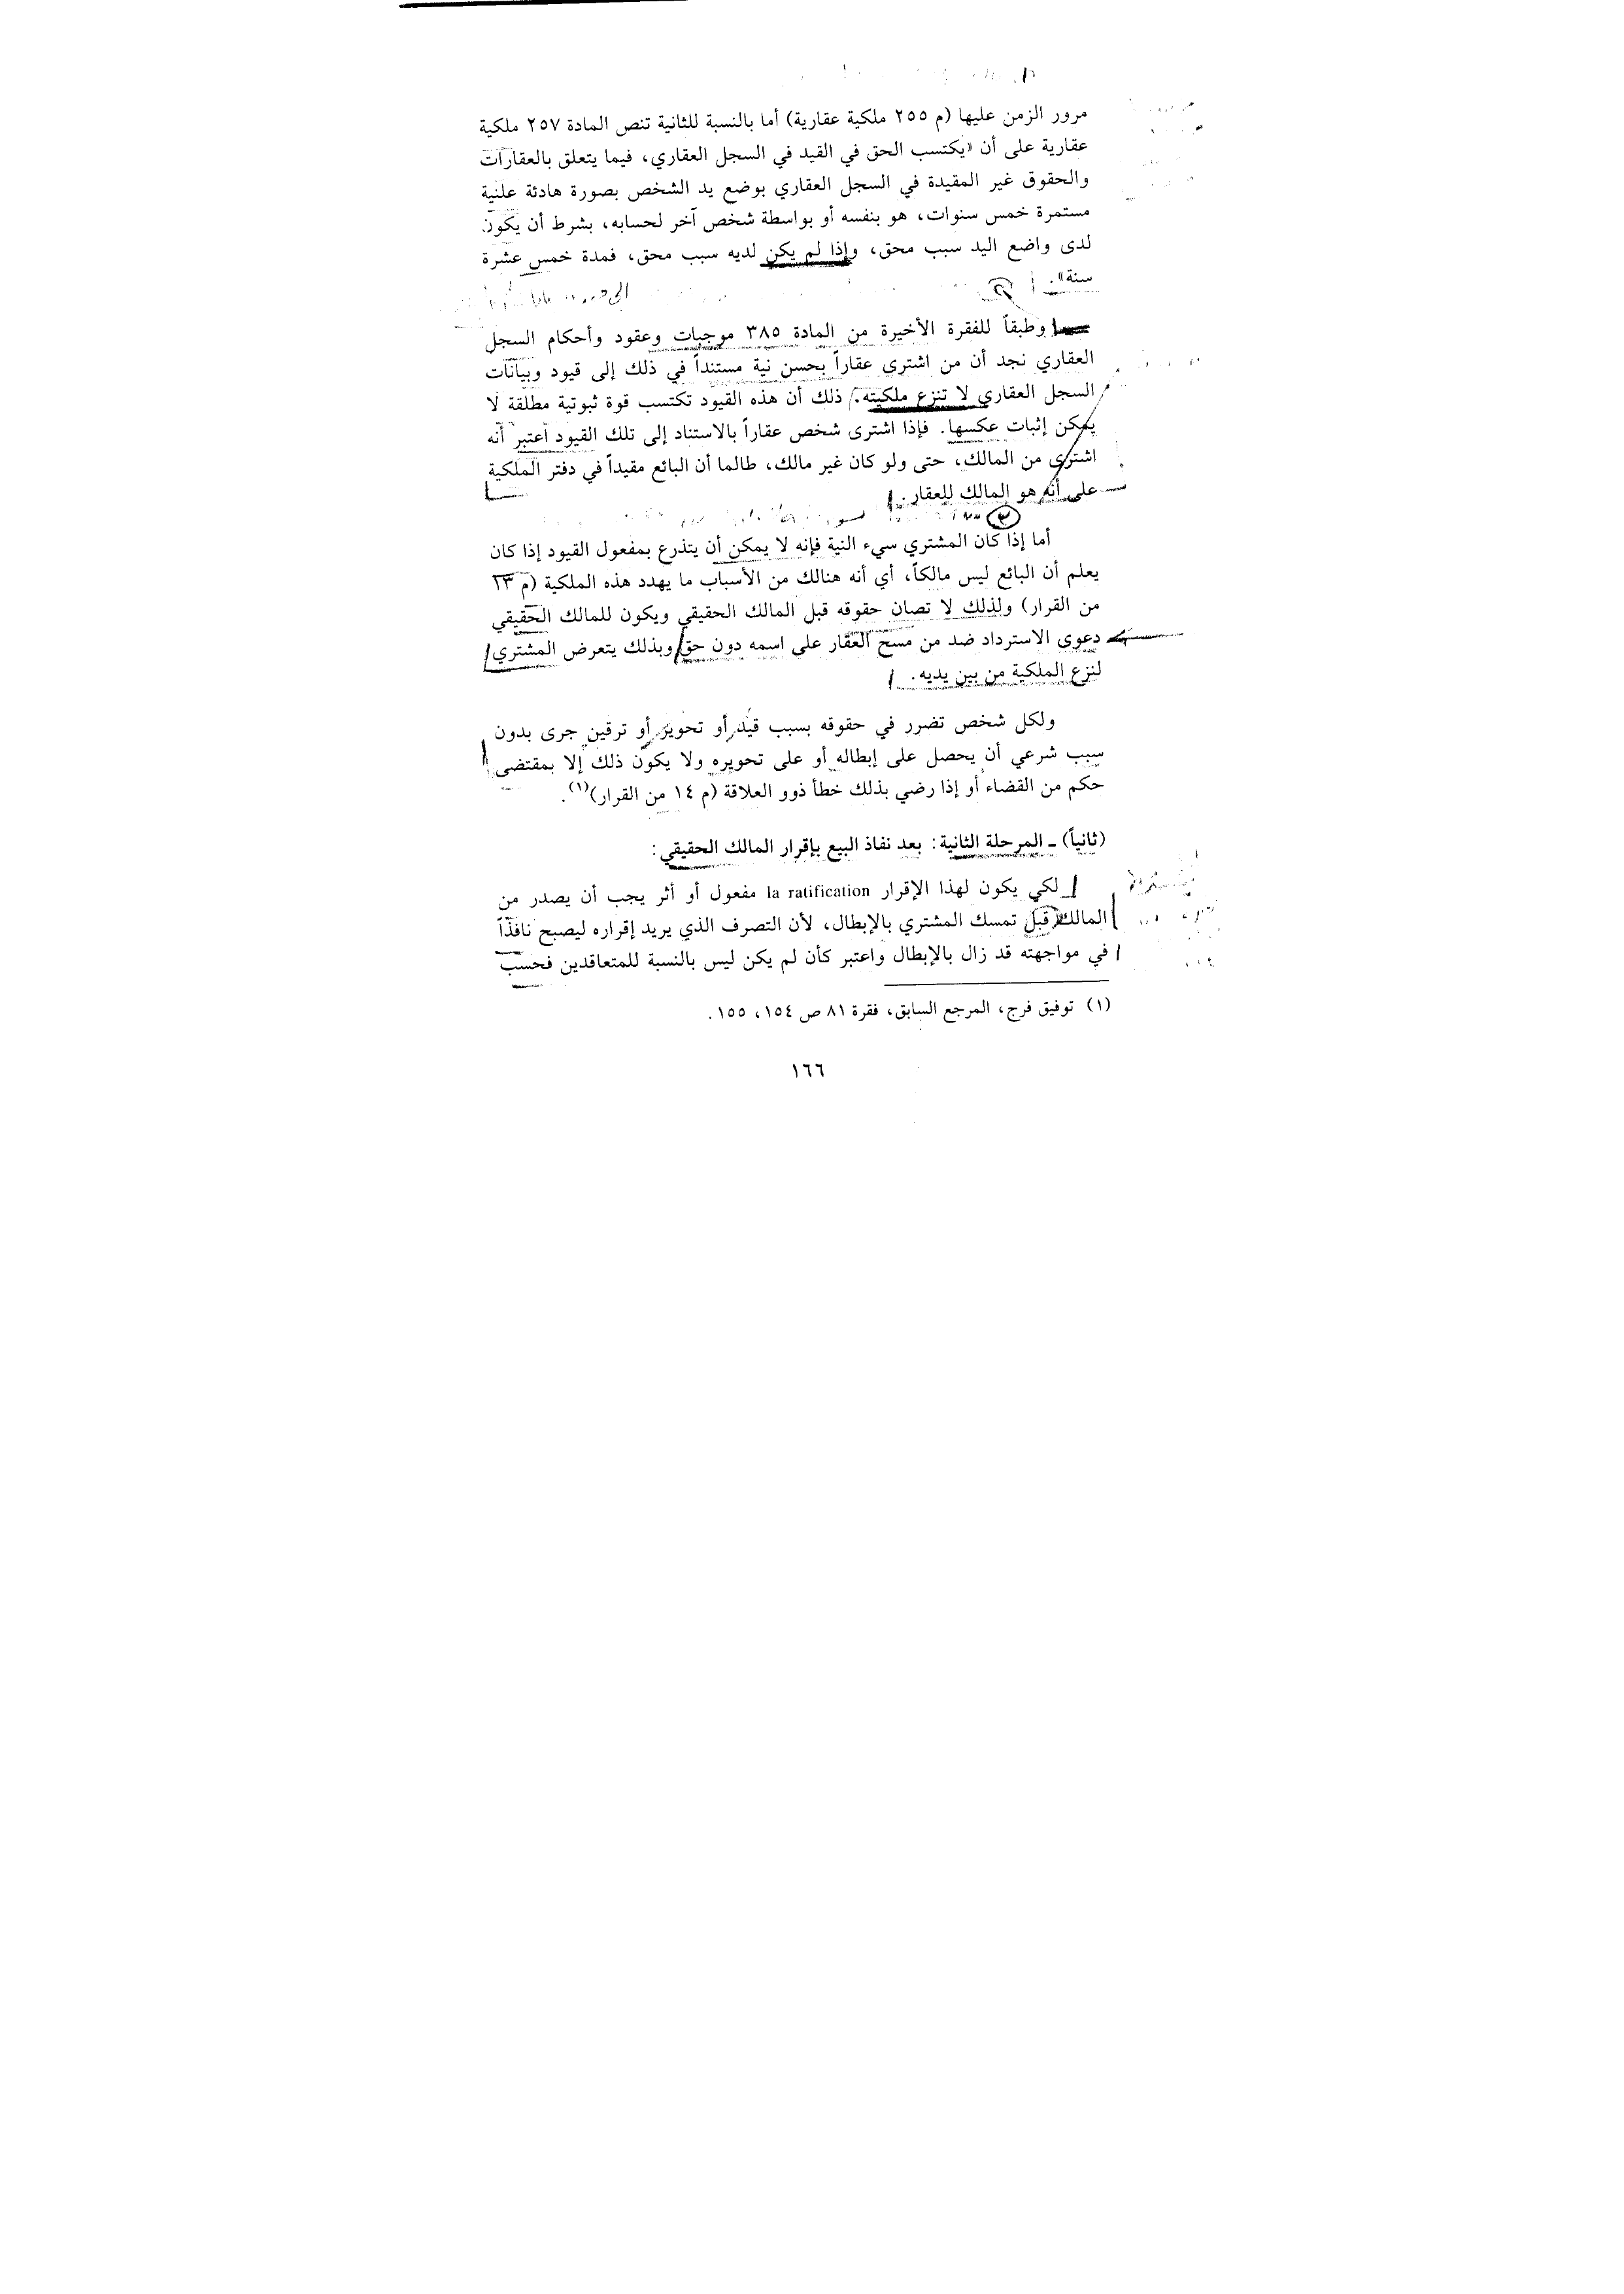 مرور الزمن عليها (م ٢٥٥ ملكية عقارية) أما بالنسبة للثانية تنص المادة ٢٥٧ ملكية
عقارية على أن «يكتسب الحق في القيد في السجل العقاري، فيما يتعلق بالعقارات
والحقوق غير المقيدة في السجل العقاري بوضع يد الشخص بصورة هادئة علنية
مستمرة خمس سنوات، هو بنفسه أو بواسطة شخص آخر لحسابه، بشرط أن يكون
لدى واضع اليد سبب محق، وإذا لم يكن لديه سبب محق، فمدة خمس عشرة
سنة».
وطبقاً للفقرة الأخيرة من المادة ٣٨٥ موجبات وعقود وأحكام السجل
العقاري نجد أن من اشترى عقاراً بحسن نية مستنداً في ذلك إلى قيود وبيانات
السجل العقاري لا تنزع ملكيته. ذلك أن هذه القيود تكتسب قوة ثبوتية مطلقة لا
يمكن إثبات عكسها. فإذا اشترى شخص عقاراً بالاستناد إلى تلك القيود اعتبر أنه
اشترى من المالك، حتى ولو كان غير مالك، طالما أن البائع مقيداً في دفتر الملكية
على أنه هو المالك للعقار.
أما إذا كان المشتري سيء النية فإنه لا يمكن أن يتذرع بمفعول القيود إذا كان
يعلم أن البائع ليس مالكاً، أي أنه هنالك من الأسباب ما يهدد هذه الملكية (م ١٣
من القرار) ولذلك لا تصان حقوقه قبل المالك الحقيقي ويكون للمالك الحقيقي
دعوى الاسترداد ضد من مسح العقار على اسمه دون حق وبذلك يتعرض المشتري
لنزع الملكية من بين يديه.
ولكل شخص تضرر في حقوقه بسبب قيد أو تحوير أو ترقين جرى بدون
سبب شرعي أن يحصل على إبطاله أو على تحويره ولا يكون ذلك إلا بمقتضى
حكم من القضاء أو إذا رضي بذلك خطأ ذوو العلاقة (م ١٤ من القرار)(١).
(ثانياً) ـ المرحلة الثانية: بعد نفاذ البيع بإقرار المالك الحقيقي:
لكي يكون لهذا الإقرار la ratification مفعول أو أثر يجب أن يصدر من
المالك قبل تمسك المشتري بالإبطال، لأن التصرف الذي يريد إقراره ليصبح نافذاً
في مواجهته قد زال بالإبطال واعتبر كأن لم يكن ليس بالنسبة للمتعاقدين فحسب
(١) توفيق فرج، المرجع السابق، فقرة ٨١ ص ١٥٤، ١٥٥.
١٦٦